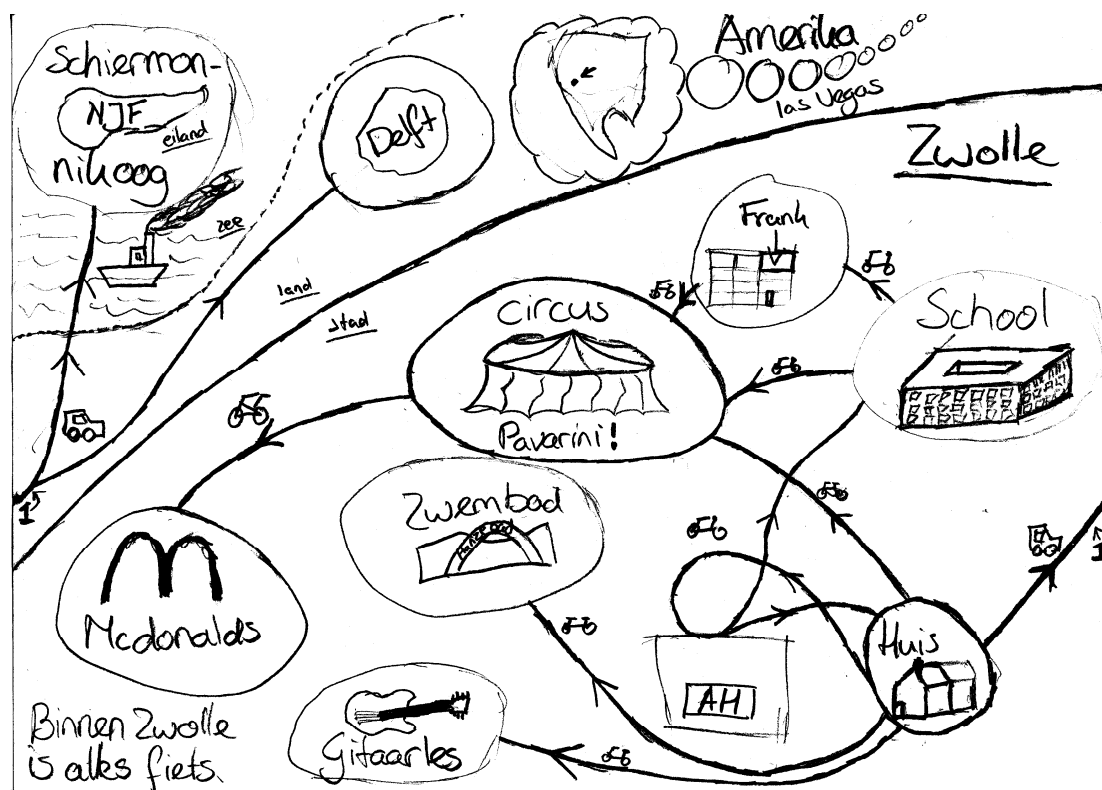 Schiermon-
NJF
eiland
nikoog
zee
Delft
Amerika
las Vegas
Zwolle
land
stad
Frank
circus
Pavarini!
School
1
Zwembad
1
Mcdonalds
Huis
AH
Gitaarles
Binnen Zwolle
is alles fiets.